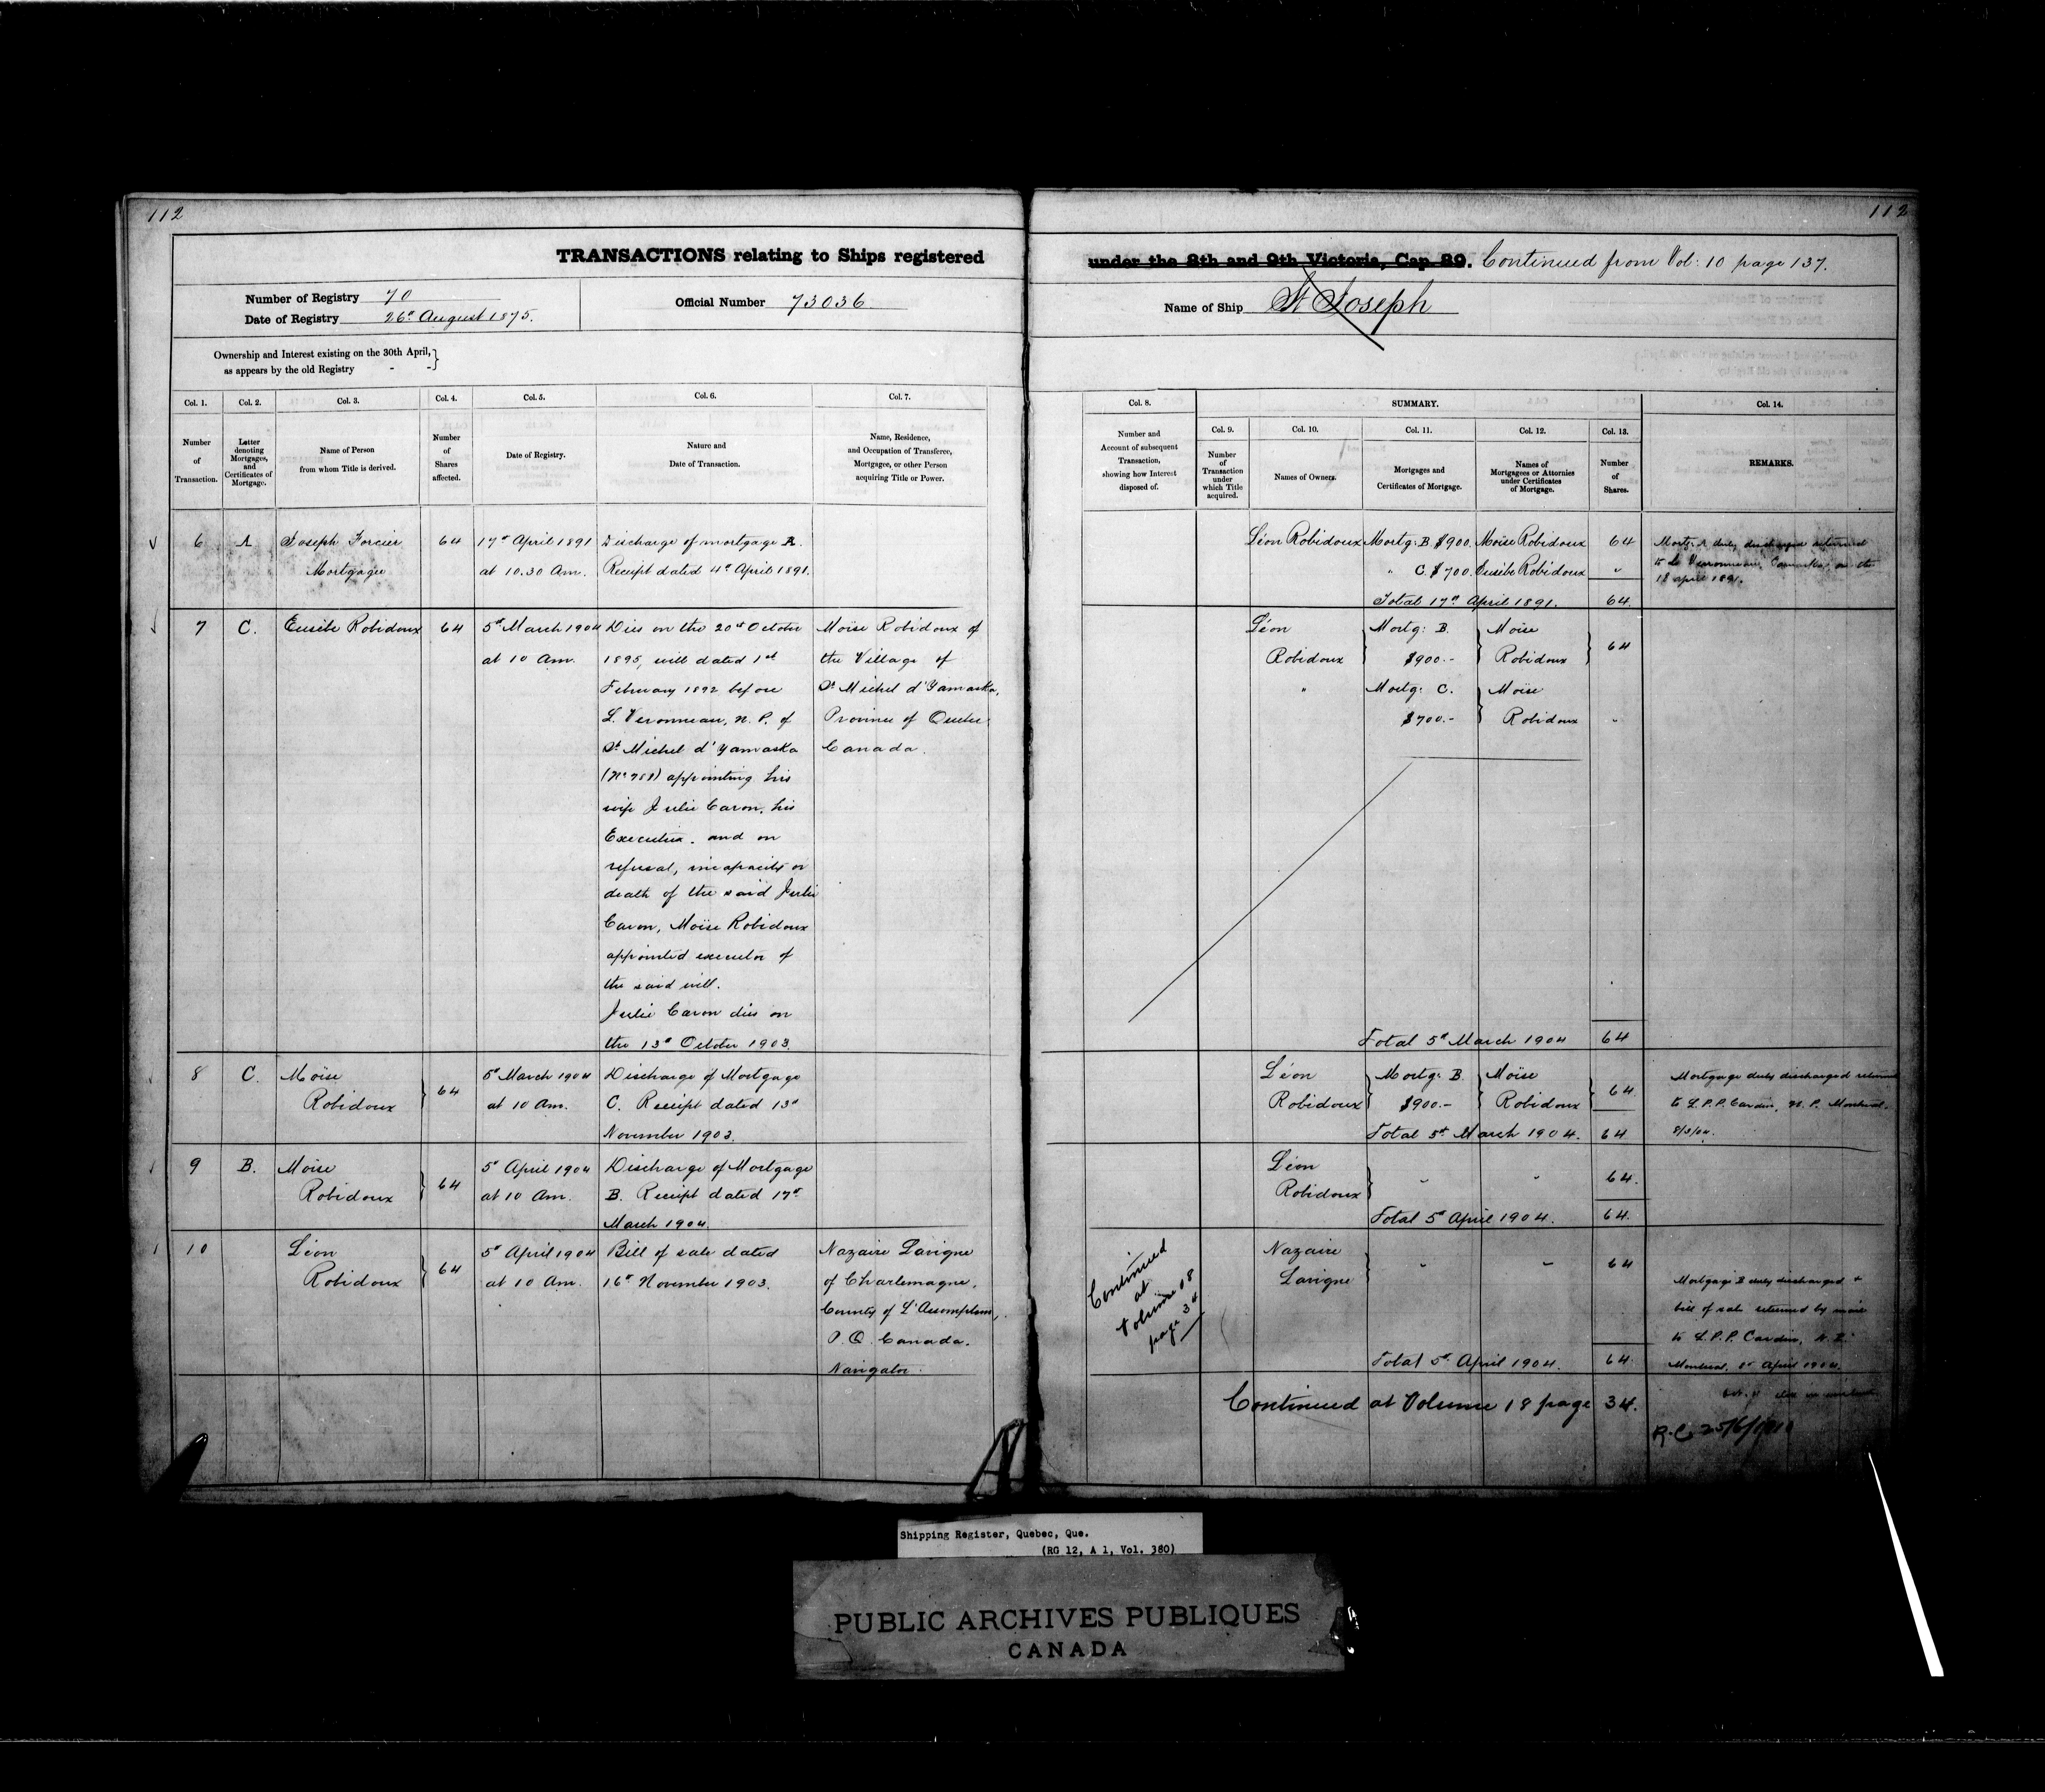 112
112
TRANSACTIONS relating to Ships registered under the 8th and 9th Victoria, Cap. 89. Continued from Vol: 10 page 137.
Number of Registry 70
Date of Registry 26th August 1875.
Official Number 73036
Name of Ship St Joseph
Ownership and Interest existing on the 30th April,
as appears by the old Registry - -
Col. 1.
Number
of
Transaction.
Col. 2.
Letter
denoting
Mortgages,
and
Certificates of
Mortgage.
Col. 3.
Name of Person
from whom Title is derived.
Col. 4.
Number
of
Shares
affected.
Col. 5.
Date of Registry.
Col. 6.
Nature and
Date of Transaction.
Col. 7.
Name, Residence,
and Occupation of Transferee,
Mortgagee, or other Person
acquiring Title or Power.
Col. 8.
Number and
Account of subsequent
Transaction,
showing how Interest
disposed of.
SUMMARY.
Col. 9.
Number
of
Transaction
under
which Title
acquired.
Col. 10.
Names of Owners.
Col. 11.
Mortgages and
Certificates of Mortgage.
Col. 12.
Names of
Mortgagees or Attornies
under Certificates
of Mortgage.
Col. 13.
Number
of
Shares.
Col. 14.
REMARKS.
6
A
Joseph Forcier
Mortgagee
64
17th April 1891
at 10.30 Am.
Discharge of mortgage A.
Receipt dated 4th April 1891.
Léon Robidoux Mortg: B. $900. Moïse Robidoux 64
" C. $700. Eusèbe Robidoux "
Total 17th April 1891. 64.
Mortg: A duly discharged returned
to L. Veronneau, Yamaska, on the
18 april 1891.
7
C.
Eusèbe Robidoux
64
5th March 1904
at 10 Am.
Dies on the 20th October
1895, will dated 1st
February 1892 before
L. Veronneau, N. P. of
St Michel d'Yamaska
appointing his
wife Julie Caron, his
Executrix. and on
refusal, incapacity or
death of the said Julie
Caron, Moïse Robidoux
appointed executor of
the said will.
Julie Caron dies on
the 13th October 1903.
Moïse Robidoux of
the Village of
St Michel d'Yamaska,
Province of Quebec
Canada.
Léon
Robidoux
Mortg: B.
$900.-
Moïse
Robidoux
64
"
Mortg: C.
$700.-
Moïse
Robidoux
"
Total 5th March 1904 64
8
C.
Moïse
Robidoux
64
5th March 1904
at 10 Am.
Discharge of Mortgage
C. Receipt dated 13th
November 1903.
Léon
Robidoux
Mortg: B.
$900.-
Moïse
Robidoux
64
Total 5th March 1904. 64
Mortgage duly discharged returned
to L.P.P. Cardin, N. P. Montreal.
8/3/04.
9
B.
Moïse
Robidoux
64
5th April 1904
at 10 Am.
Discharge of Mortgage
B. Receipt dated 17th
March 1904.
Léon
Robidoux
"
"
64.
Total 5th April 1904. 64.
10
Léon
Robidoux
64
5th April 1904
at 10 Am.
Bill of sale dated
16th November 1903.
Nazaire Lavigne
of Charlemagne,
County of L'Assomption,
P. Q. Canada.
Navigator.
Continued
at
Volume 18
page 34
Nazaire
Lavigne
"
"
64
Total 5th April 1904. 64
Mortgage B duly discharged &
bill of sale returned by mail
to L.P.P. Cardin, N. P.
Montreal, April 1904.
Continued at Volume 18 page 34.
R.C. 25/6/1910
Shipping Register, Quebec, Que.
(RG 12, A 1, Vol. 380)
PUBLIC ARCHIVES PUBLIQUES
CANADA